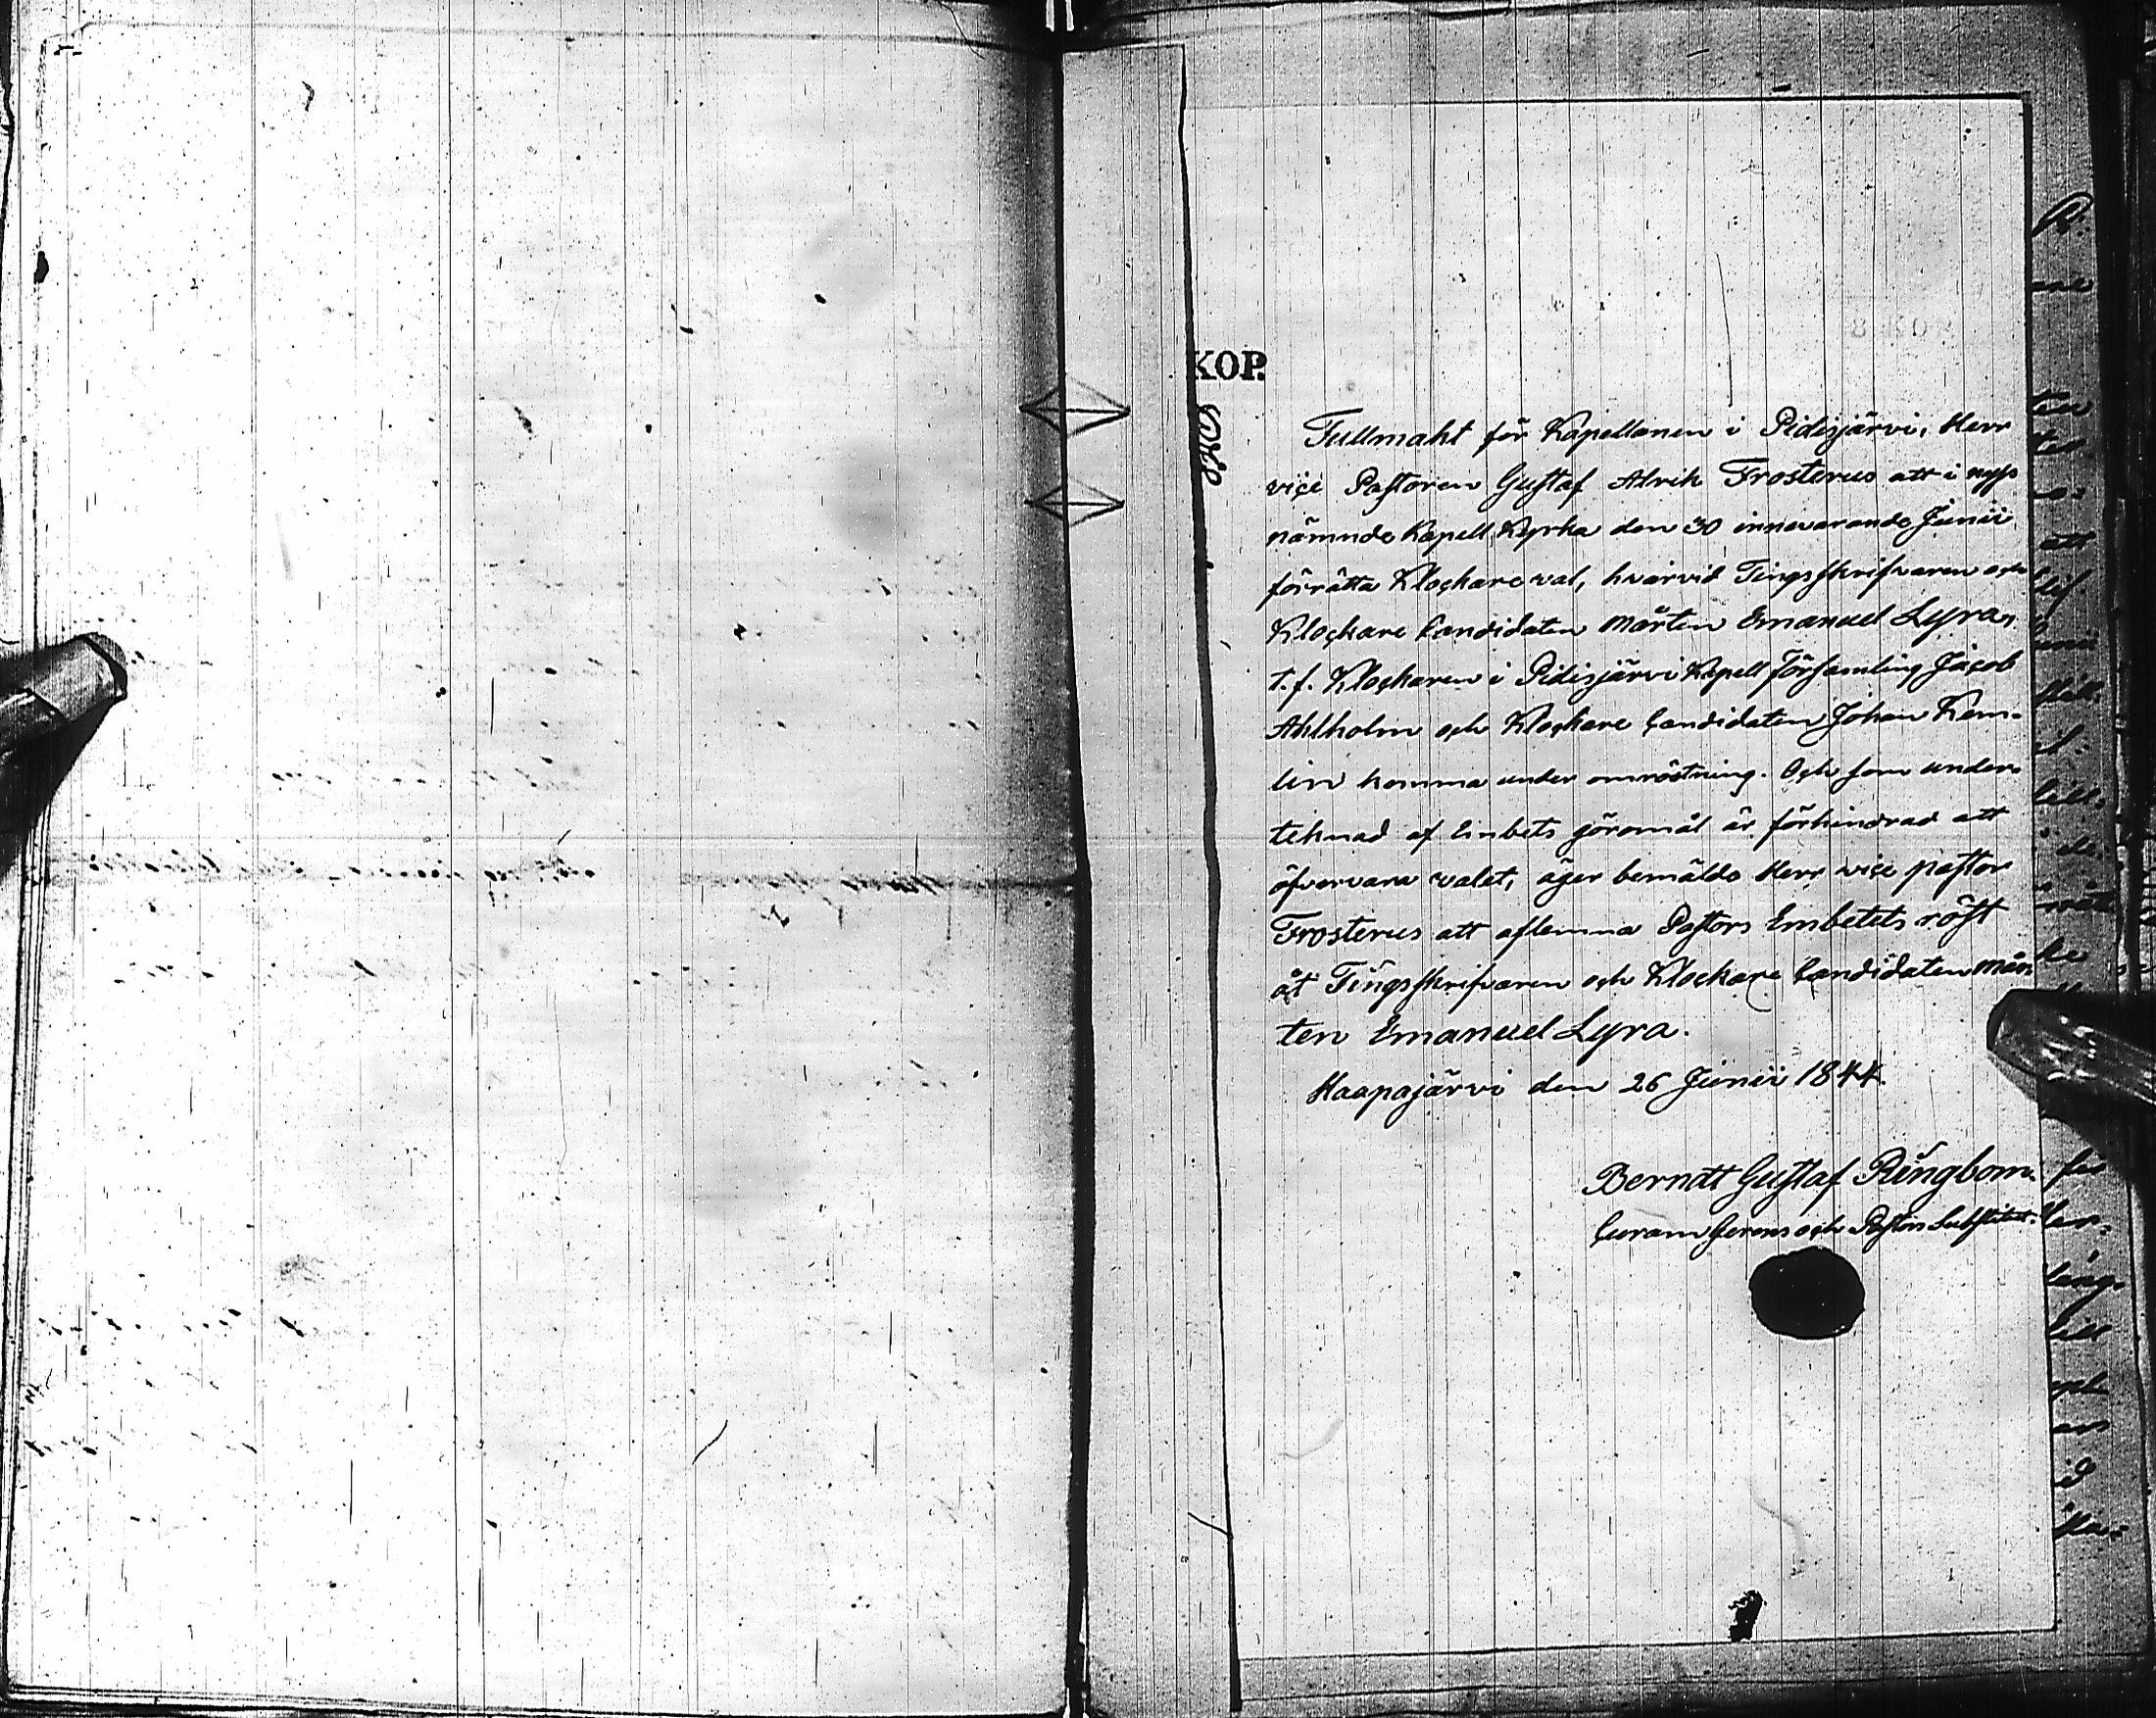 KOP.
Fullmakt för Kapellanen i Pidisjärvi, Herr
vice Pastoren Gustaf Alrik Frosterus att i nyss
nämnde Kapell Kyrka den 30 innevarande Junii
förrätta Klockare val, hvarvid Tingsskrifvaren och
Klockare Candidaten Mårten Emanuel Lyra,
t.f. Klockaren i Pidisjärvi Kapell församling Jacob
Ahlholm och Klockare Candidaten Johan Kem-
lin komma under omröstning. Och som under-
teknad af Embets göromål är förhindrad att
öfvervara valet, äger bemälde Herr vice pastor
Frosterus att aflemna Pastors Embetets röst
åt Tingsskrifvaren och Klockare Candidaten Mår-
ten Emanuel Lyra.
Haapajärvi den 26 Junii 1844.
Berndt Gustaf Ringbom.
Curam Gerens och Pastors Substitut.